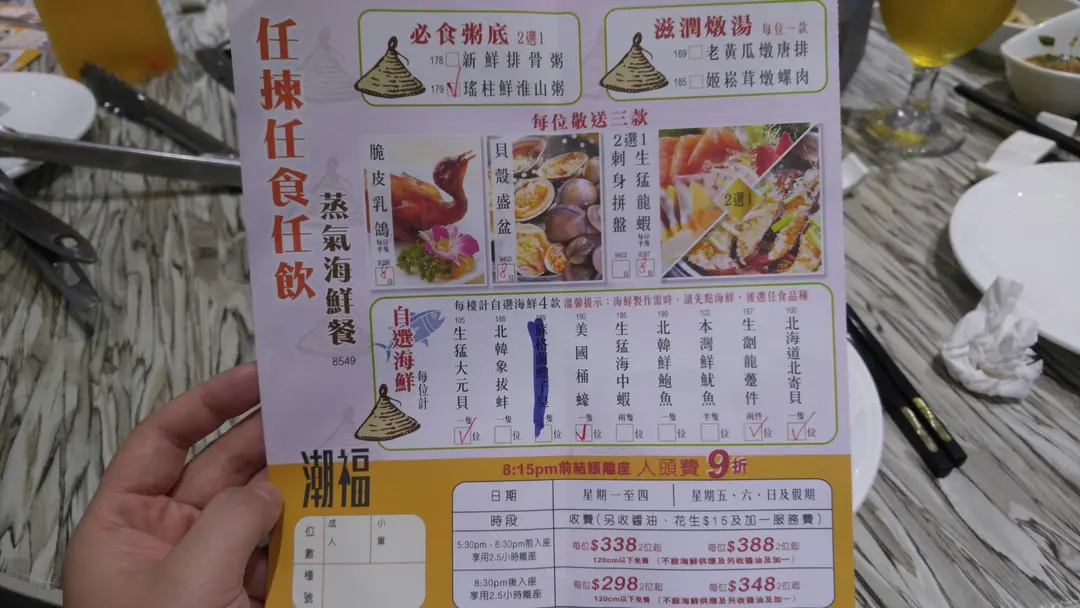 任揀任食任飲
蒸氣海鮮餐
8549
必食粥底 2選1
178 新鮮排骨粥
179 瑤柱鮮淮山粥
滋潤燉湯 每位一款
169 老黃瓜燉唐排
165 姬松茸燉螺肉
每位敬送三款
脆皮乳鴿
每位半隻
8
位
貝殼盛盆
9400
8
位
2選1
刺身拼盤
9402
位
生猛龍蝦
每位半隻
8
位
2選1
自選海鮮
每位計
每檯計自選海鮮4款 溫馨提示:海鮮製作需時,請先點海鮮,後選任食品種
105 生猛大元貝 一隻 位
188 北韓象拔蚌 一隻 位
190 美國桶蠔 一隻 位
195 生猛海中蝦 兩隻 位
199 北韓鮮鮑魚 一隻 位
102 本灣鮮魷魚 半隻 位
197 生劏龍躉件 兩件 位
100 北海道北寄貝 一隻 位
潮福
8:15pm前結賬離座 人頭費9折
位數
成人
小童
檯號
日期 星期一至四 星期五、六、日及假期
時段 收費(另收醬油、花生$15及加一服務費)
5:30pm - 6:30pm前入座
享用2.5小時離座
每位$338 2位起 每位$388 2位起
120cm以下免費 (不設海鮮供應及另收醬油及加一)
8:30pm後入座
享用2.5小時離座
每位$298 2位起 每位$348 2位起
120cm以下免費 (不設海鮮供應及另收醬油及加一)